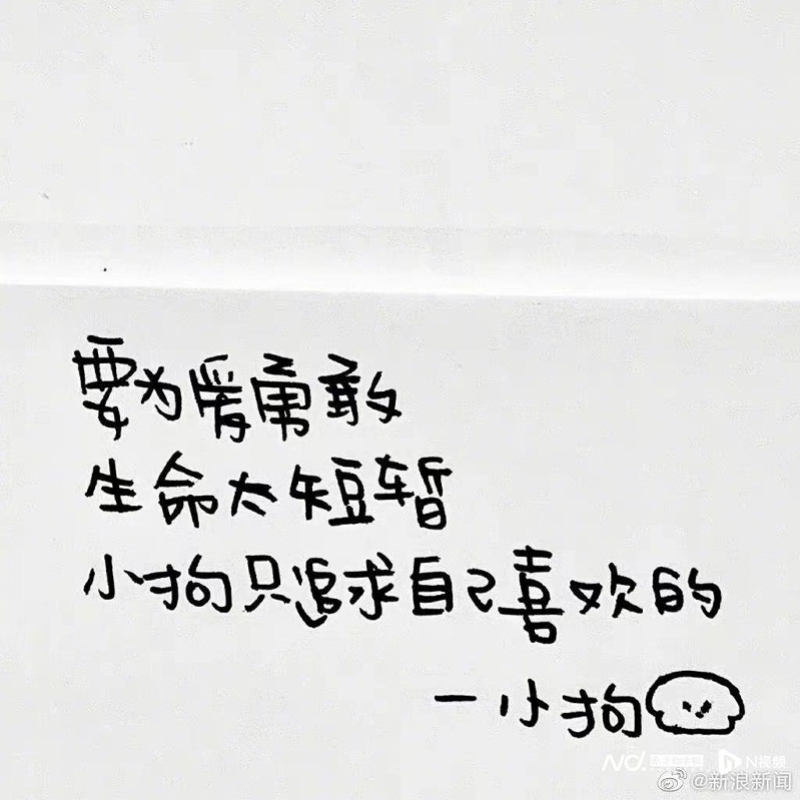 要为爱勇敢
生命太短暂
小狗只追求自己喜欢的
一小狗
N视频
@新浪新闻